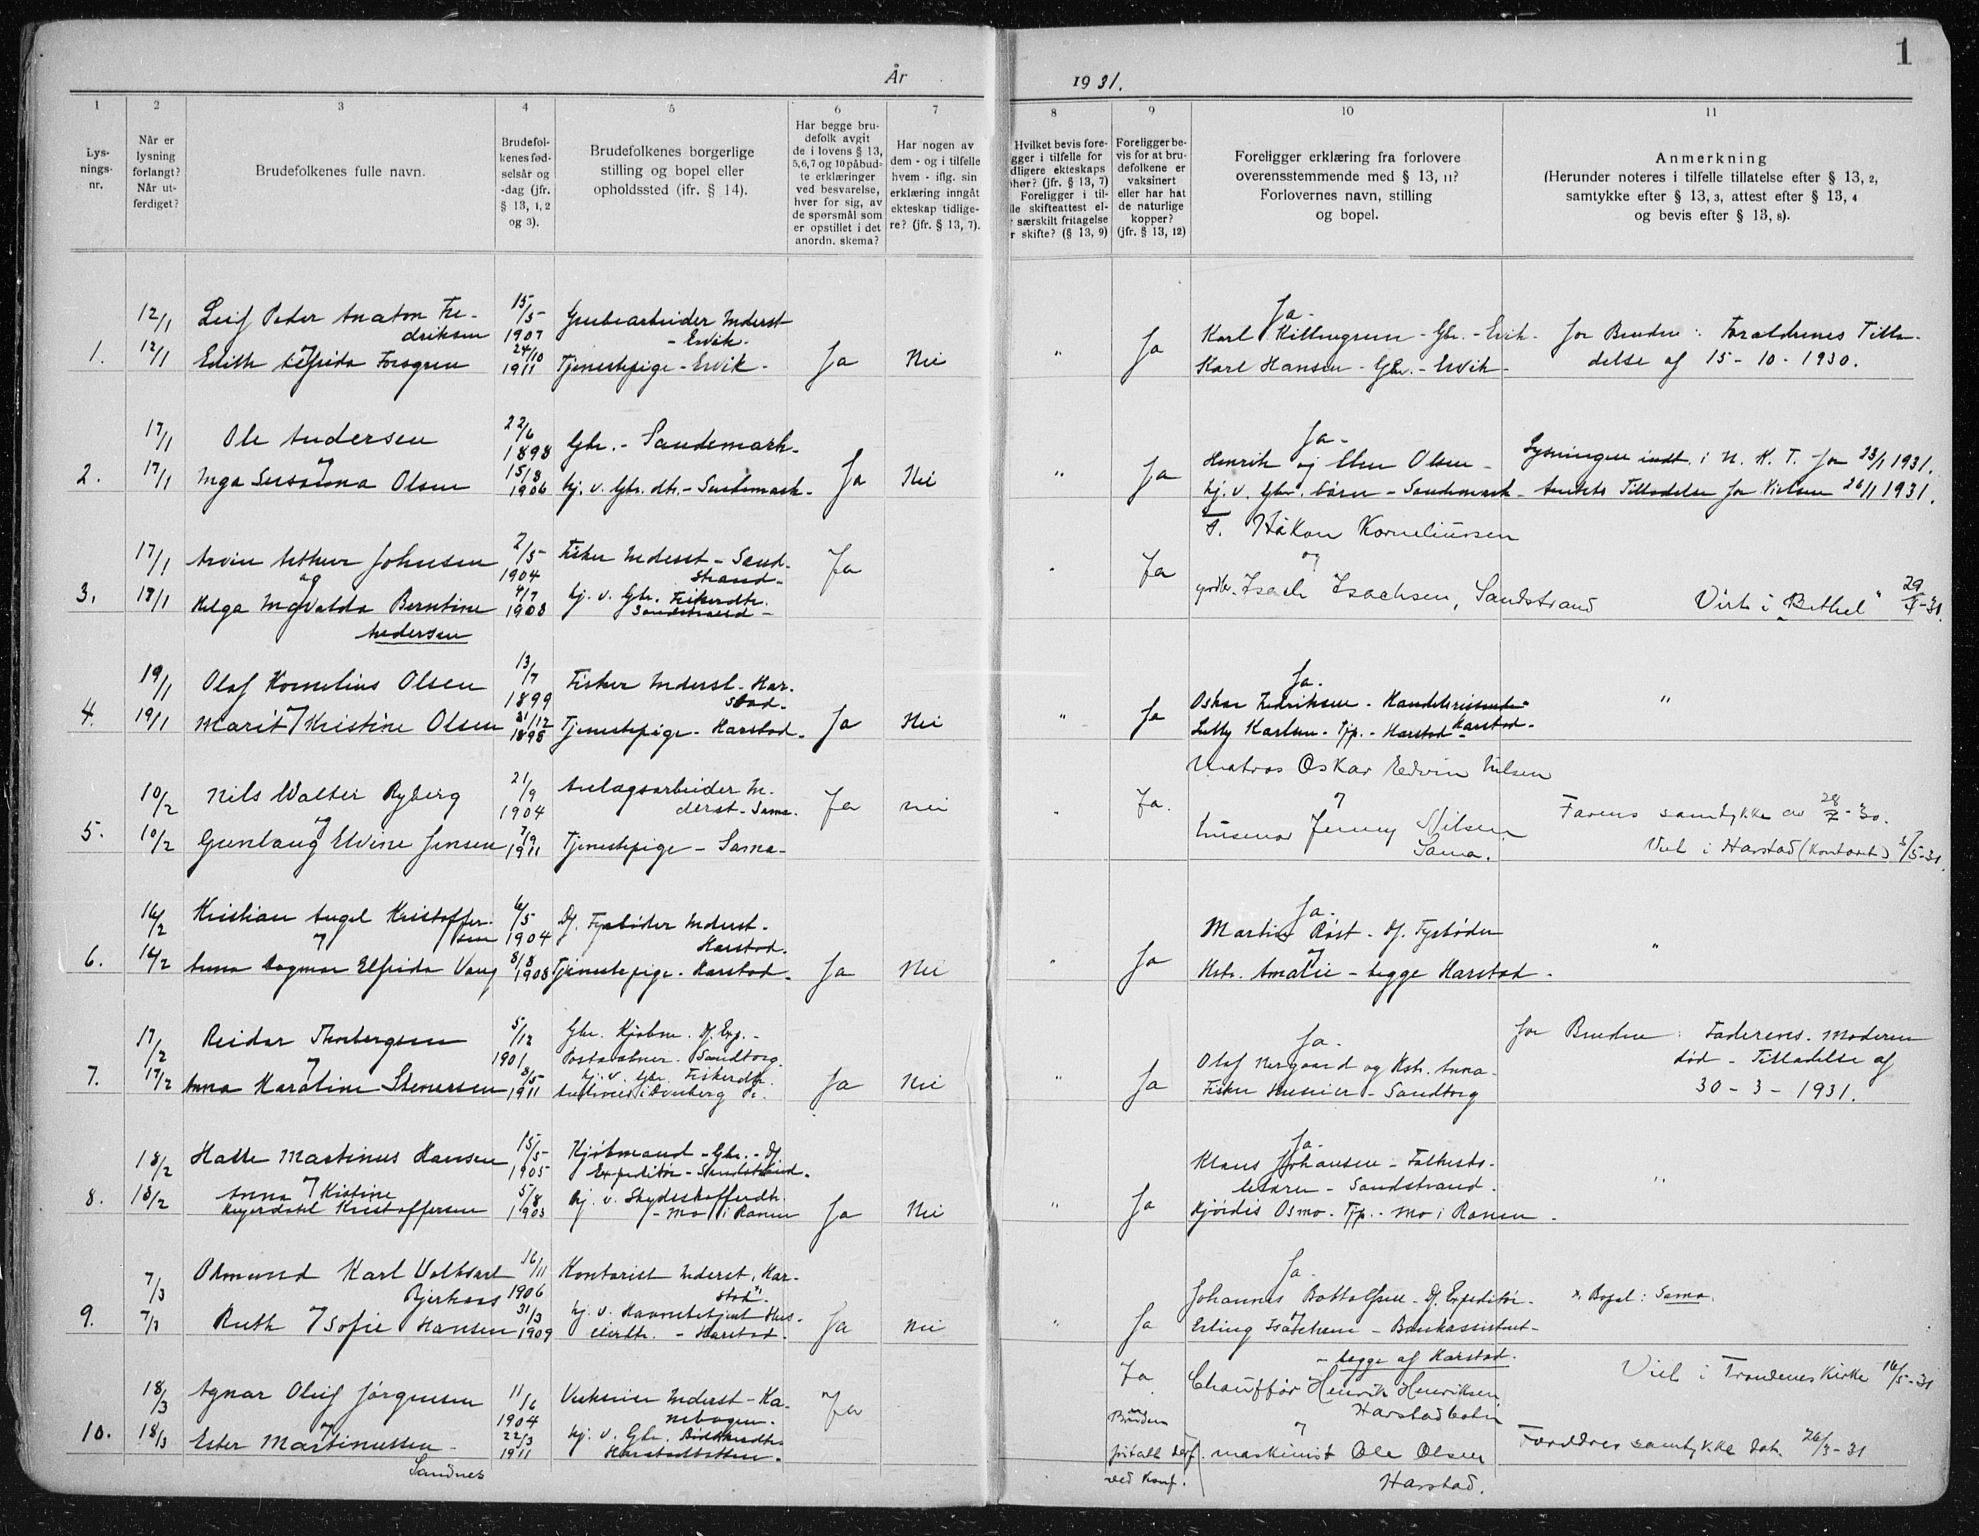 1
År 1931.
1 2 3 4 5 6 7 8 9 10 11
Lysnings-
nr.
Når er
lysning
forlangt?
Når ut-
ferdiget?
Brudefolkenes fulle navn.
Brudefol-
kenes fød-
selsår og
-dag (jfr.
§ 13, 1, 2
og 3).
Brudefolkenes borgerlige
stilling og bopel eller
opholdssted (jfr. § 14).
Har begge bru-
defolk avgit
de i lovens § 13,
5,6,7 og 10 påbud-
te erklæringer
ved besvarelse,
hver for sig, av
de spørsmål som
er opstillet i det
anordn. skema?
Har nogen av
dem - og i tilfelle
hvem - iflg. sin
erklæring inngått
ekteskap tidlige-
re? (jfr. § 13, 7).
Hvilket bevis fore-
gger i tilfelle for
dligere ekteskaps
phør? (jfr. § 13, 7)
Foreligger i til-
lle skifteattest el-
r særskilt fritagelse
r skifte? (§ 13, 9)
Foreligger be-
vis for at bru-
defolkene er
vaksinert
eller har hat
de naturlige
kopper?
(jfr. § 13, 12)
Foreligger erklæring fra forlovere
overensstemmende med § 13, 11?
Forlovernes navn, stilling
og bopel.
Anmerkning
(Herunder noteres i tilfelle tillatelse efter § 13, 2,
samtykke efter § 13, 3, attest efter § 13, 4
og bevis efter § 13, 8).
1.
12/1
12/1
Leif Peder Anaton Fre-
driksen
Edith Alfrida Forsgren
15/5
1907
24/10
1911
Grubearbeider Inderst
- Ervik.
Tjenestepige - Ervik -
Ja Nei " Ja
Ja.
Karl Hansen - Gbr. - Ervik -
for Bruden: Forældrenes Tilla-
delse af 15 - 10 - 1930.
2.
17/1
17/1
Ole Andersen
Inga Susanna Olsen
22/6
1898
15/8
1906
Gbr. - Sandemark.
hj. v. Gbr. dtr. - Sandemark.
Ja Nei " Ja
Ja.
Henrik og Olsen -
hj. v. Gbr. - Sandemark -
Lysningen indt. i N. K. T. for 23/1 1931.
Amtets Tilladelse for Vielsen 26/1 1931.
3.
17/1
Arvin Arthur Johnsen
og
Helga Ingvalda Berntine
Andersen
2/5
1904
4/7
1908
Fisker Inderst - Sand-
strand -
hj. v. Gbr. Fiskerdtr.
Sandstrand -
Ja Ja
Håkon Korneliussen
og
gbr. Isach Isachsen, Sandstrand
Viet i "Bethel"
4.
19/1
19/1
Olaf Kornelius Olsen
Marit Kristine Olsen
13/7
1899
31/12
1898
Fisker Inderst - Har-
stad.
Tjenestepige - Harstad.
Ja Nei " Ja
Ja.
Oskar Fredriksen - Handelsreisende -
Harstad -
Karlsen - Tjp. - Harstad -
"
5.
10/2
10/2
Nils Walter Ryberg
Gunlaug Elvine Jensen
21/9
1904
7/9
1911
Anlagsarbeider In-
derst - Sama.
Tjenestepige - Sama -
Ja Nei Ja.
Matros Oskar Edvin Nilsen
husmor Jenny Nilsen
Sama.
Farens samtykke av
Viet i Harstad (kontoret) 3/5-31
6.
16/2
16/2
Kristian Angel Kristoffer-
sen
Anna Dagmar Elfrida Vang
6/5
1904
8/8
1908
Df. Fyrbøder Inderst.
Harstad.
Tjenestepige - Harstad -
Ja Nei " Ja
Ja.
Martin Røst - Df. Fyrbøder
Hstr. Amalie - begge Harstad -
"
7.
17/2
17/2
Reidar Thorbergsen
Anna Karoline Stenersen
5/12
1901
8/5
1911
Gbr. Kjøbm. Df. Exp. -
Postaabner. Sandtorg
hj. v. Gbr. Fiskerdtr.
Ja Nei " Ja
Ja.
Olaf Nergaard og Hstr. Anna -
Fisker Huseier - Sandtorg
for Bruden: Faderens. Moderen
død - Tilladelse af
30 - 3 - 1931.
8.
18/2
18/2
Halle Martinus Hansen
Anna Kistine
Kristoffersen
15/5
1905
5/8
1903
Kjøbmand - Gbr. - Df.
Expeditør - Sandstrand -
hj. v. Skydsskafferdtr.
- Mo i Ranen
Ja Nei " Ja
Ja.
Klaus Johansen - Folkesko-
lelærer - Sandstrand.
Hjördis Osmo - Tjp. - Mo i Ranen -
"
9.
7/3
7/3
Osmund Karl Volkvart
Bjerkaas
Ruth Sofie Hansen
16/11
1906
31/3
1909
Kontorist Inderst, Har-
stad.
hj. v. Havnebetjent Hus-
eierdtr. - Harstad -
Ja Nei " Ja
Ja.
Johannes Bottolfsen - Df. Expeditør -
Erling Isachsen - Bankassistent -
- begge af Harstad.
x. Bopel: Sama.
10.
18/3
18/3
Agnar Oluf Jørgensen
Ester Martinussen -
Sandnes
11/6
1904
22/3
1911
Veksler Inderst - Ka-
nebogen -
hj. v. Gbr.
Harstadbotten.
Ja Ja
Bruden
fritatt derf.
ved Konf.
Chauffør Henrik Henriksen
Harstadbotn
maskinist Ole Olsen
Harstad.
Viet i Trondenes Kirke 16/5-31
Foreldres samtykke dat. 26/3-31